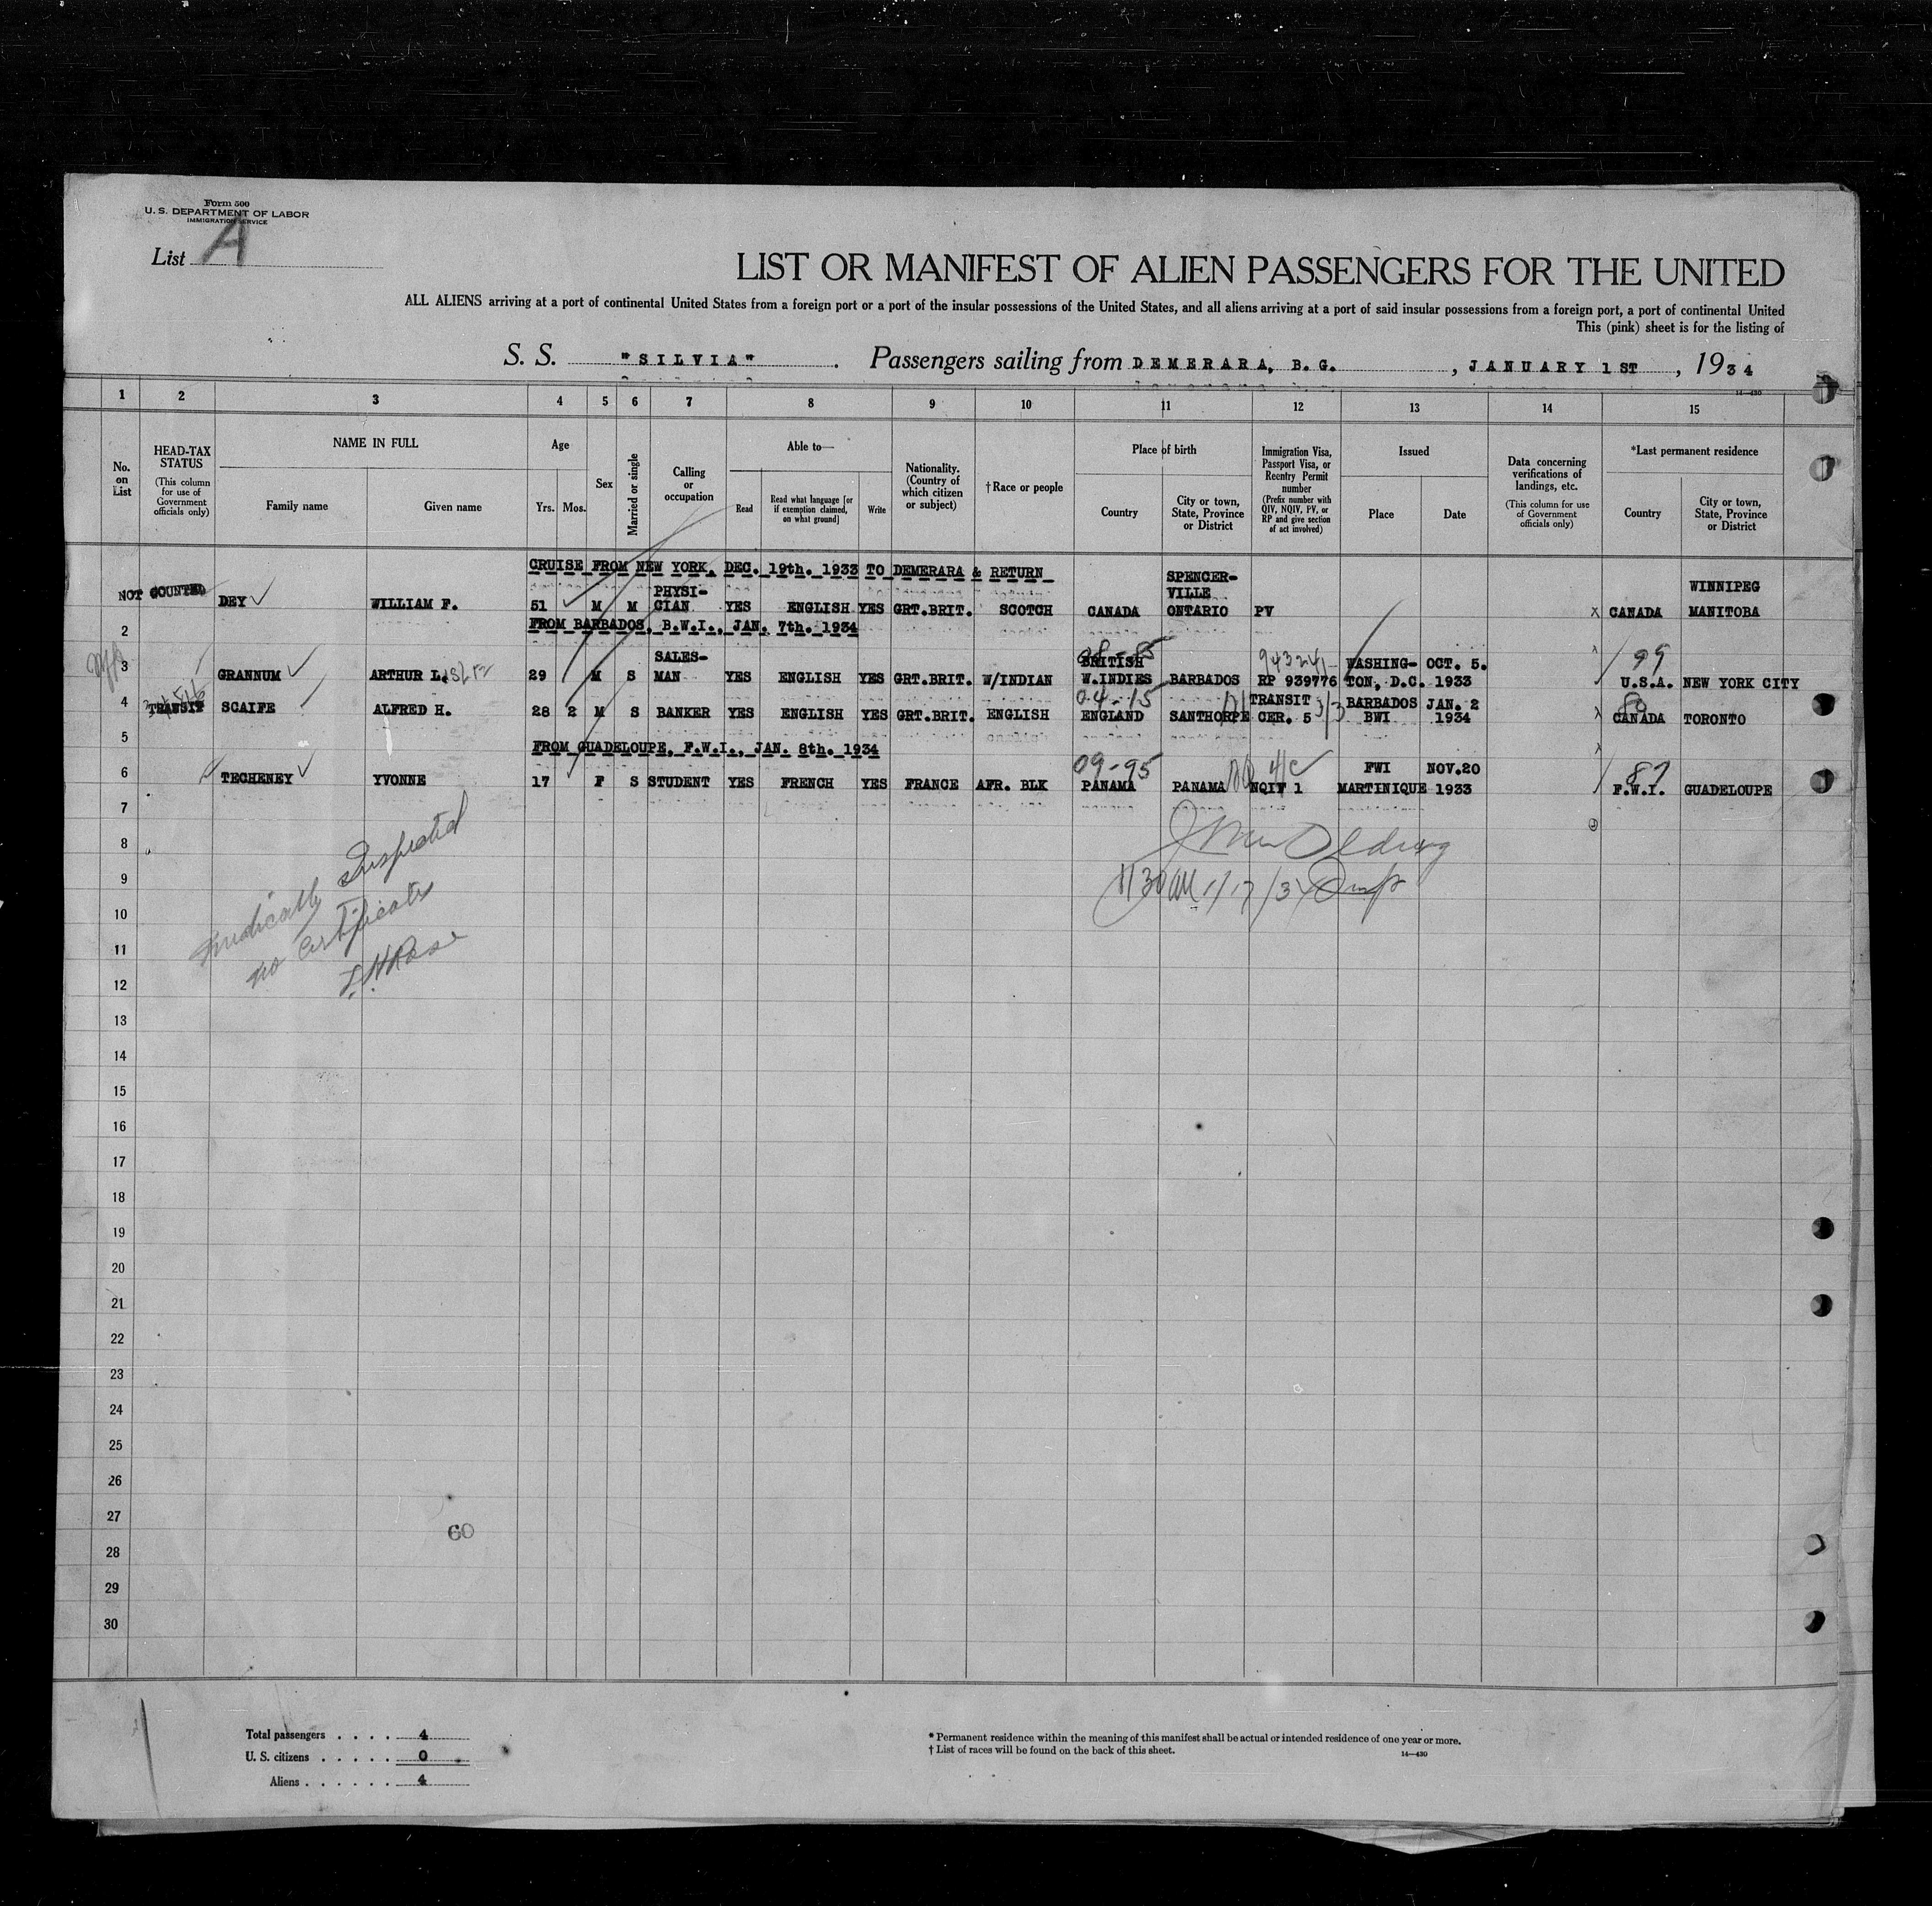 Form 500
U. S. DEPARTMENT OF LABOR
IMMIGRATION SERVICE
List A
LIST OR MANIFEST OF ALIEN PASSENGERS FOR THE UNITED
ALL ALIENS arriving at a port of continental United States from a foreign port or a port of the insular possessions of the United States, and all aliens arriving at a port of said insular possessions from a foreign port, a port of continental United
This (pink) sheet is for the listing of
S. S. "SILVIA" . Passengers sailing from DEMERARA, B.G. , JANUARY 1ST , 1934
14—430
1 2 3 4 5 6 7 8 9 10 11 12 13 14 15
No. on List
HEAD-TAX STATUS (This column for use of Government officials only)
NAME IN FULL
Family name Given name
Age
Yrs. Mos.
Sex
Married or single
Calling or occupation
Able to—
Read
Read what language [or if exemption claimed, on what ground]
Write
Nationality. (Country of which citizen or subject)
†Race or people
Place of birth
Country
City or town, State, Province or District
Immigration Visa, Passport Visa, or Reentry Permit number (Prefix number with QIV, NQIV, PV, or RP and give section of act involved)
Issued
Place Date
Data concerning verifications of landings, etc. (This column for use of Government officials only)
*Last permanent residence
Country
City or town, State, Province or District
CRUISE FROM NEW YORK, DEC. 19th. 1933 TO DEMERARA & RETURN
NOT COUNTED DEY WILLIAM F. 51 M M PHYSI-CIAN YES ENGLISH YES GRT.BRIT. SCOTCH CANADA SPENCER-VILLE ONTARIO PV X CANADA WINNIPEG MANITOBA
2 FROM BARBADOS, B.W.I., JAN. 7th. 1934
3 GRANNUM ARTHUR L. 29 M S SALES-MAN YES ENGLISH YES GRT.BRIT. W/INDIAN BRITISH W.INDIES BARBADOS 943241 RP 939776 WASHING-TON, D.C. OCT. 5. 1933 99 U.S.A. NEW YORK CITY
4 TRANSIT SCAIFE ALFRED H. 28 2 M S BANKER YES ENGLISH YES GRT.BRIT. ENGLISH 04-15 ENGLAND SANTHORPE TRANSIT CER. 5 3/3 BARBADOS BWI JAN. 2 1934 X CANADA TORONTO
5 FROM GUADELOUPE, F.W.I., JAN. 8th. 1934
6 TECHENEY YVONNE 17 F S STUDENT YES FRENCH YES FRANCE AFR. BLK 09-95 PANAMA PANAMA NQIV 1 FWI MARTINIQUE NOV.20 1933 87 F.W.I. GUADELOUPE
7
8
9
10
11
12
13
14
15
16
17
18
19
20
21
22
23
24
25
26
27
28
29
30
Medically Inspected
no Certificate
60
Total passengers . . . . 4
U. S. citizens . . . . . 0
Aliens . . . . . . 4
* Permanent residence within the meaning of this manifest shall be actual or intended residence of one year or more.
† List of races will be found on the back of this sheet.
14—430